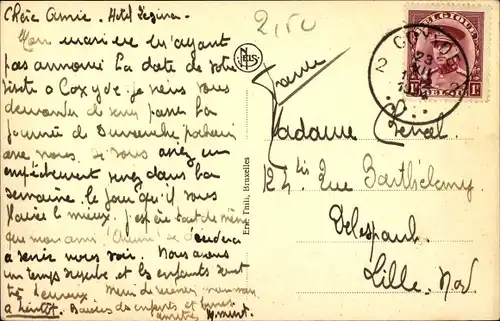 Chère Amie. Hôtel
Mon mari ne m'ayant
pas annoncé la date de votre
visite à Coxyde je viens vous
demander de venir passer la
journée de Dimanche prochain
avec nous. Si vous aviez un
empêchement venez dans la
semaine le jour qu'il vous
plaira le mieux. J'espère tout de même
que mon amie se décidera
à venir nous voir. Nous avons
un temps superbe et les enfants sont
très heureux. Merci de
à bientôt. Baisers des enfants et bonnes
amitiés
2,50
NELS
Ern. Thill, Bruxelles
France
BELGIQUE
BELGIË
1F
COXYDE
2
23
VII
Madame
124, Rue Barthélemy
Delespaul.
Lille. Nord